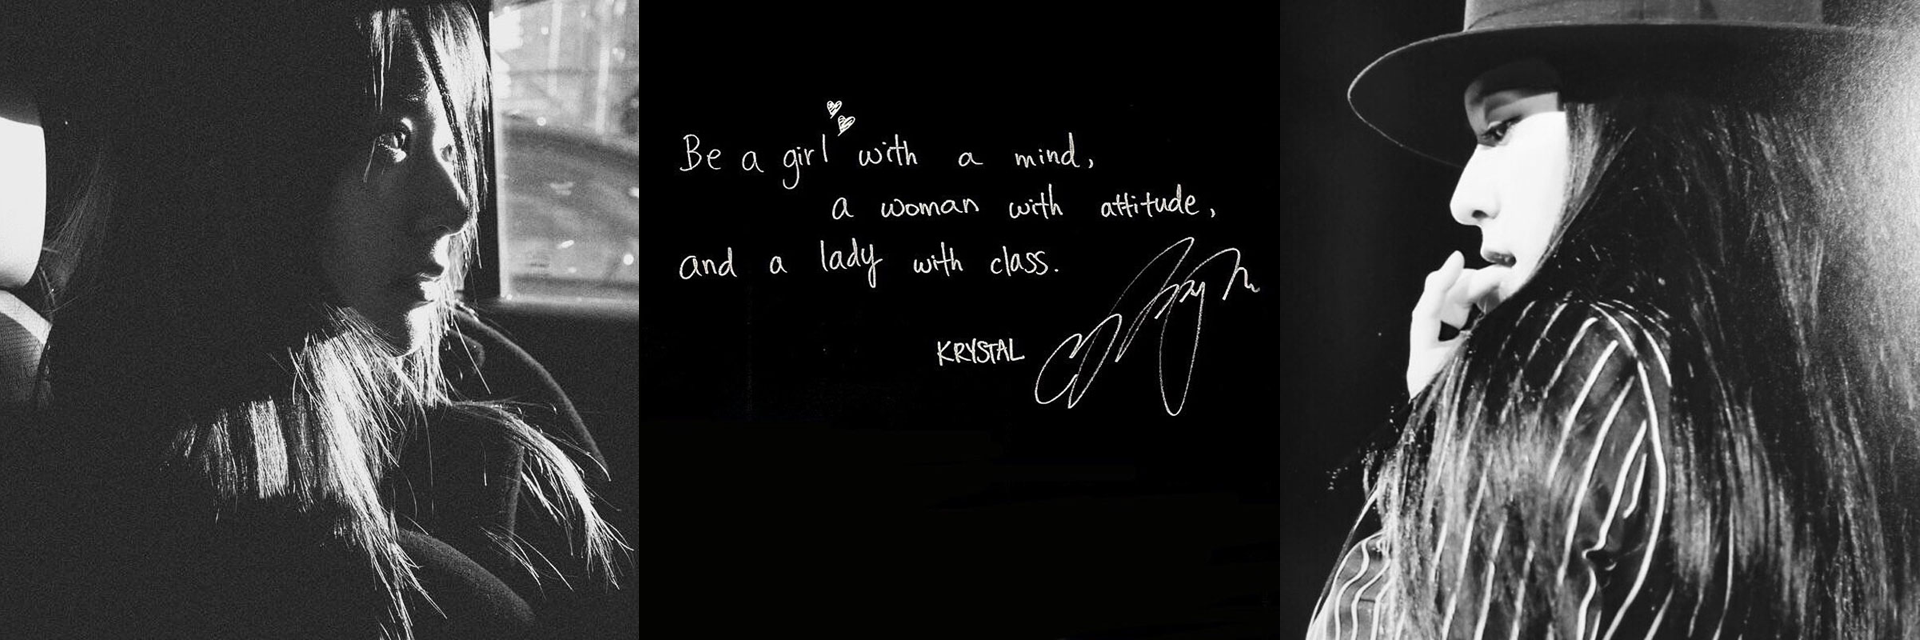 Be a girl with a mind,
a woman with attitude,
and a lady with class.
KRYSTAL